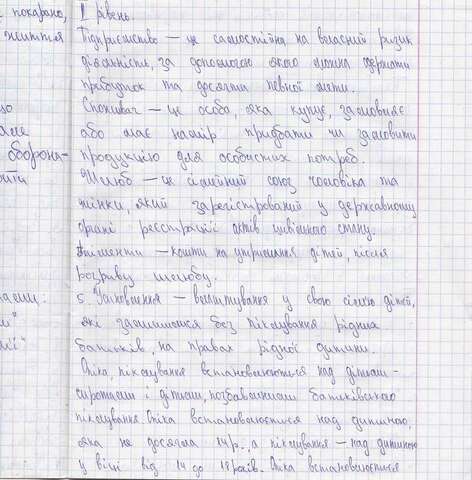 покарано,
життя
що
оборона-
ІІ рівень
Підприємство – це самостійна на власний ризик
діяльність, за допомогою якого можна одержати
прибуток та досягти певної мети.
Споживач – це особа, яка купує, замовляє
або має намір придбати чи замовити
продукцію для особистих потреб.
Шлюб – це сімейний союз чоловіка та
жінки, який зарегістрований у державному
органі реєстрації актів цивільного стану.
Аліменти – кошти на утримання дітей, після
розриву шлюбу.
5. Усиновлення – влаштування у свою сімью дітей,
які залишилися без піклування рідних
батьків, на правах рідної дитини.
Опіка, піклування встановлюються над дітьми-
сиротами і дітьми, позбавленими батьківського
піклування. Опіка встановлюється над дитиною,
яка не досягла 14 р., а піклування – над дитиною
у віці від 14 до 18 років. Опіка встановлюється